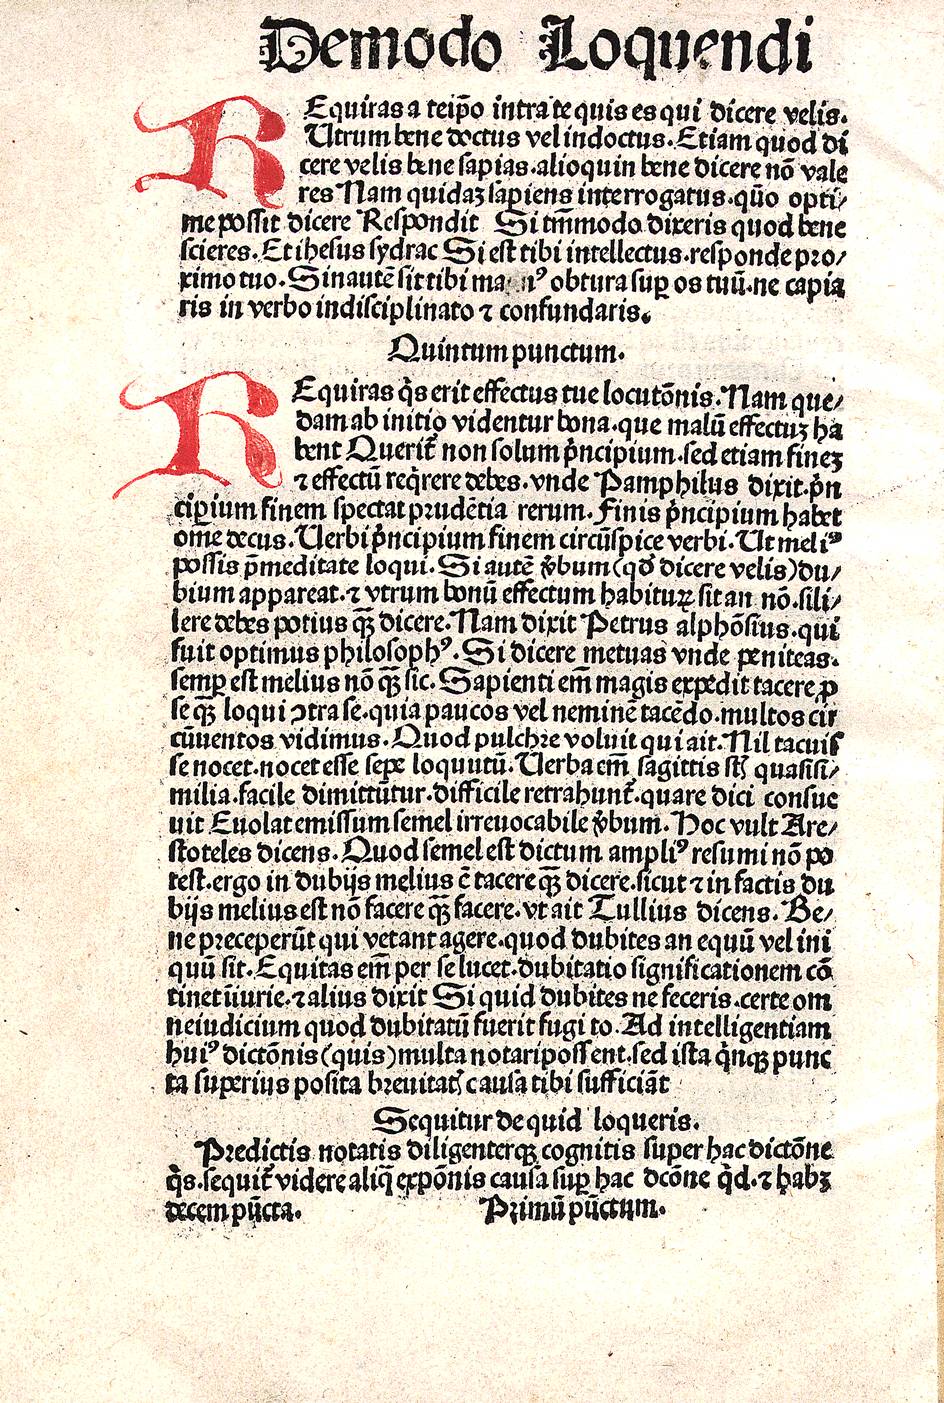 Demodo Loquendi
REquiras a teip̄o intra te quis es qui dicere velis.
Utrum bene doctus vel indoctus. Etiam quod di
cere velis bene sapias.alioquin bene dicere nō vale
res Nam quidaʒ sapiens interrogatus.qūo opti/
me possit dicere Respondit Si tm̄modo dixeris quod bene
scieres. Et ihesus sydrac Si est tibi intellectus.responde pro/
ximo tuo. Sinautē sit tibi obtura suꝑ os tuū.ne capia
ris in verbo indisciplinato ⁊ confundaris.
Quintum punctum.
REquiras q̇s erit effectus tue locutōnis. Nam que/
dam ab initio videntur bona.que malū effectuʒ ha
bent Querit᷑ non solum pͥncipium.sed etiam fineʒ
⁊ effectū req̇rere debes.vnde Pamphilus dixit.pͥn
cipium finem spectat prudētia rerum. Finis pͥncipium habet
ome decus. Uerbi pͥncipium finem circūspice verbi. Ut meliꝰ
possis p̄meditate loqui. Si autē v̇bum (qđ dicere velis) du/
bium appareat.⁊ vtrum bonū effectum habituꝝ sit an nō.sili/
lere debes potius qꝫ̄ dicere. Nam dixit Petrus alphōsius.qui
fuit optimus philosophꝰ. Si dicere metuas vnde peniteas.
semꝑ est melius nō qꝫ̄ sic. Sapienti em̄ magis expedit tacere ꝓ
se qꝫ̄ loqui ↄtra se.quia paucos vel neminē tacēdo.multos cir
cūuentos vidimus. Quod pulchre voluit qui ait. Nil tacuis
se nocet.nocet esse sepe loquutū. Uerba em̄ sagittis st̄ quasisi/
milia.facile dimittūtur.difficile retrahunt᷑.quare dici consue
uit Euolat emissum semel irreuocabile v̇bum. Hoc vult Are/
stoteles dicens. Quod semel est dictum ampliꝰ resumi nō po
test.ergo in dubijs melius ē tacere qꝫ̄ dicere.sicut ⁊ in factis du
bijs melius est nō facere qꝫ̄ facere.vt ait Tullius dicens. Be/
ne preceperūt qui vetant agere.quod dubites an equū vel ini
quū sit. Equitas em̄ per se lucet.dubitatio significationem cō
tinet iniurie.⁊ alius dixit Si quid dubites ne feceris.certe om
ne iudicium quod dubitatū fuerit fugi to. Ad intelligentiam
huiꝰ dictōnis (quis) multa notari possent.sed ista q̇nqꝫ punc
ta superius posita breuitatꝭ causa tibi sufficiāt
Sequitur de quid loqueris.
Predictis notatis diligenterqꝫ cognitis super hac dictōne
q̇s.sequit᷑ videre aliq̄ expōnis causa suꝑ hac dcōne q̇d.⁊ habꝫ
decem pūcta. Primū pūctum.